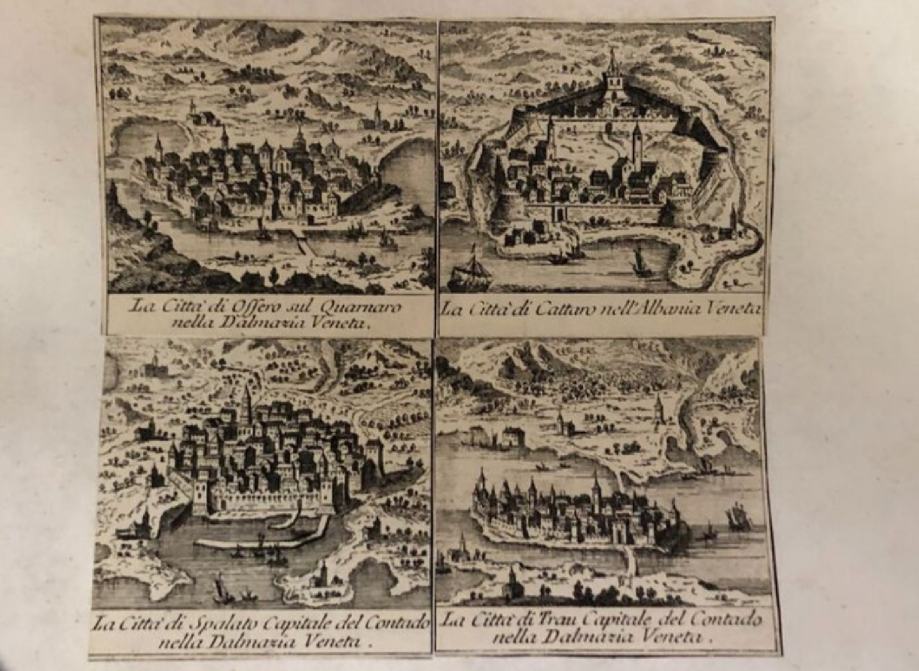 La Citta' di Ossero sul Quarnaro
nella Dalmazia Veneta.
La Citta' di Cattaro nell'Albania Veneta
La Citta' di Spalato Capitale del Contado
nella Dalmazia Veneta.
La Citta' di Trau Capitale del Contado
nella Dalmazia Veneta.